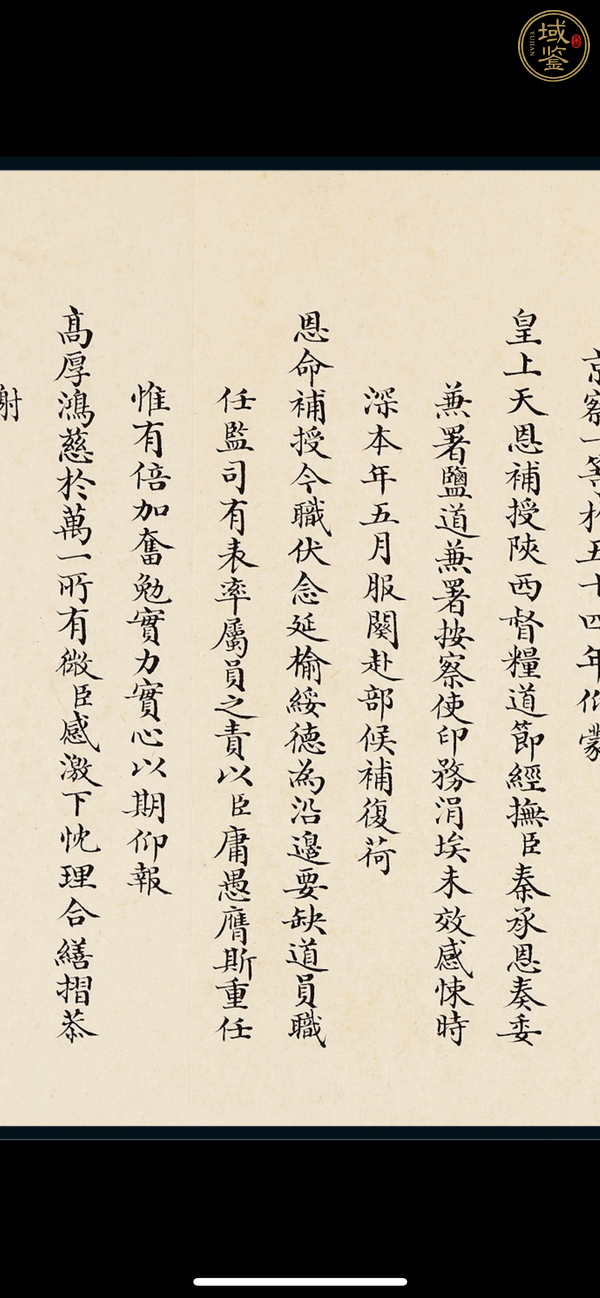 域鉴
YUJIAN
京察一等於五十四年仰蒙
皇上天恩補授陝西督糧道節經撫臣秦承恩奏委
蒹署鹽道蒹署按察使印務涓埃未效感悚時
深本年五月服闋赴部候補復荷
恩命補授今職伏念延榆綏德為沿邊要缺道員職
任監司有表率屬員之責以臣庸愚膺斯重任
惟有倍加奮勉實力實心以期仰報
高厚鴻慈於萬一所有微臣感激下忱理合繕摺恭
謝